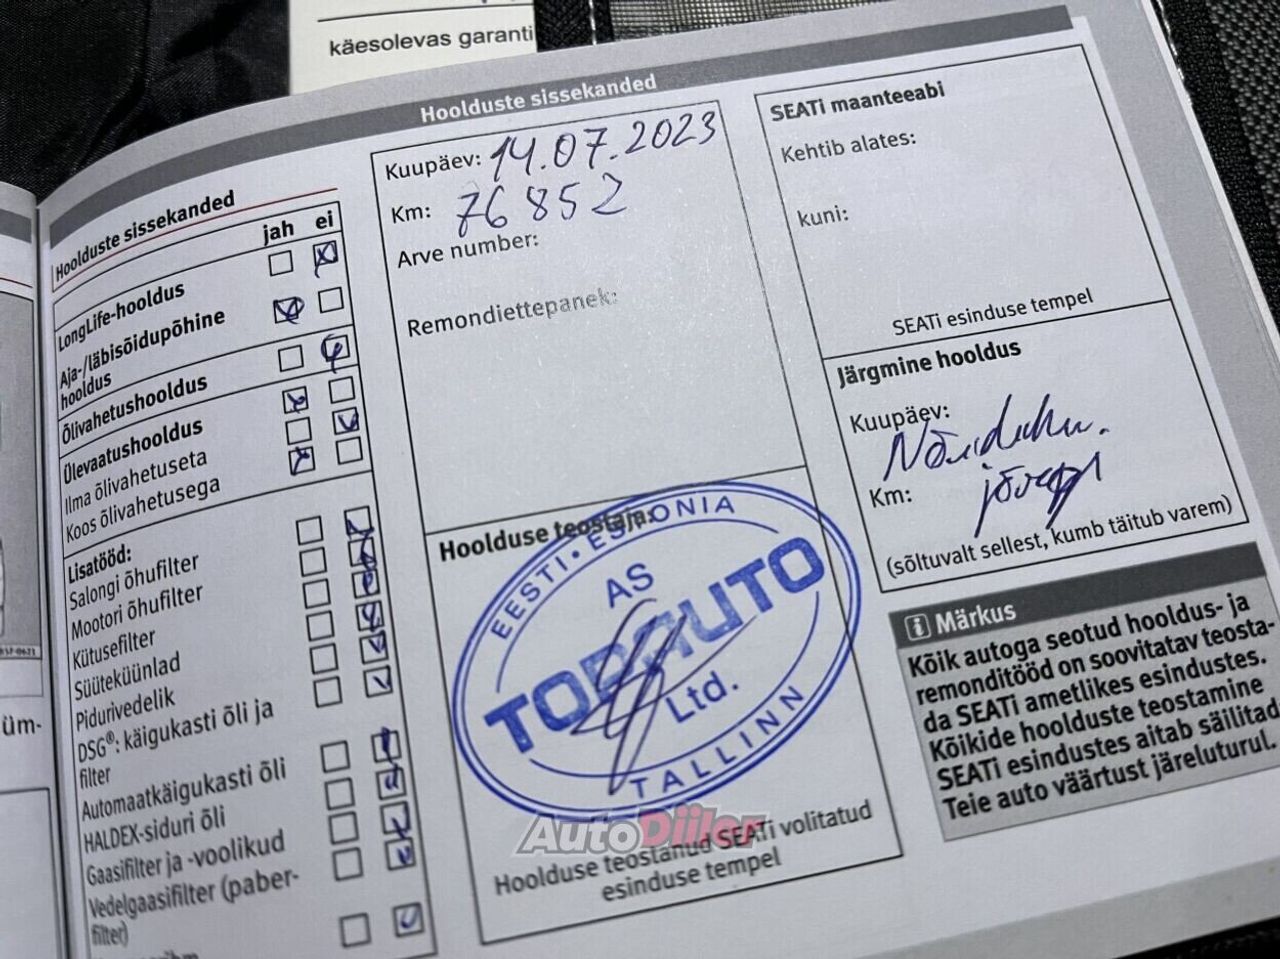 käesolevas garanti
Hoolduste sissekanded
Hoolduste sissekanded
jah ei
LongLife-hooldus
Aja-/läbisõidupõhine
hooldus
Õlivahetushooldus
Ülevaatushooldus
Ilma õlivahetuseta
Koos õlivahetusega
Lisatööd:
Salongi õhufilter
Motori õhufilter
Kütusefilter
Süüteküünlad
Pidurivedelik
DSG®: käigukasti õli ja
filter
Automaatkäigukasti õli
HALDEX-siduri õli
Gaasifilter ja -voolikud
Vedelgaasifilter (paber-
filter)
Kuupäev: 14.07.2023
Km: 76852
Arve number:
Remondiettepanek:
Hoolduse teostaja:
EESTI • ESTONIA
AS
TOPAUTO
Ltd.
TALLINN
AutoDiiler
Hoolduse teostanud SEATi volitatud
esinduse tempel
SEATi maanteeabi
Kehtib alates:
kuni:
SEATi esinduse tempel
Järgmine hooldus
Kuupäev:
Km:
(sõltuvalt sellest, kumb täitub varem)
i Märkus
Kõik autoga seotud hooldus- ja
remonditööd on soovitatav teosta-
da SEATi ametlikes esindustes.
Kõikide hoolduste teostamine
SEATi esindustes aitab säilitada
Teie auto väärtust järeluturul.
üm-